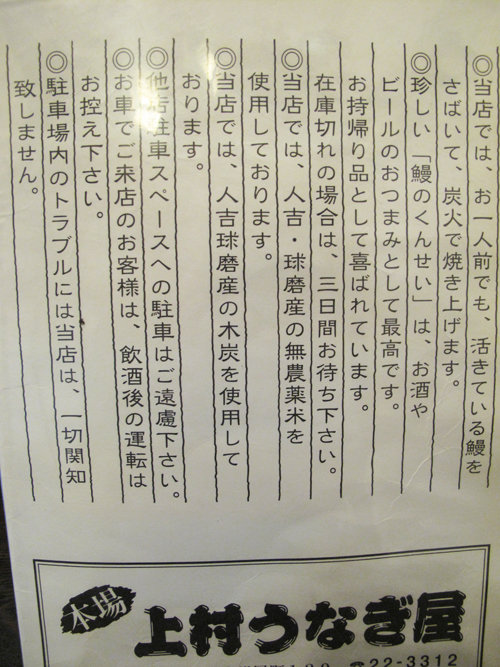 ◎当店では、お一人前でも、活きている鰻を
さばいて、炭火で焼き上げます。
◎珍しい「鰻のくんせい」は、お酒や
ビールのおつまみとして最高です。
お持帰り品として喜ばれています。
在庫切れの場合は、三日間お待ち下さい。
◎当店では、人吉・球磨産の無農薬米を
使用しております。
◎当店では、人吉球磨産の木炭を使用して
おります。
◎他店駐車スペースへの駐車はご遠慮下さい。
◎お車でご来店のお客様は、飲酒後の運転は
お控え下さい。
◎駐車場内のトラブルには当店は、一切関知
致しません。
本場
上村うなぎ屋
☎22-3312